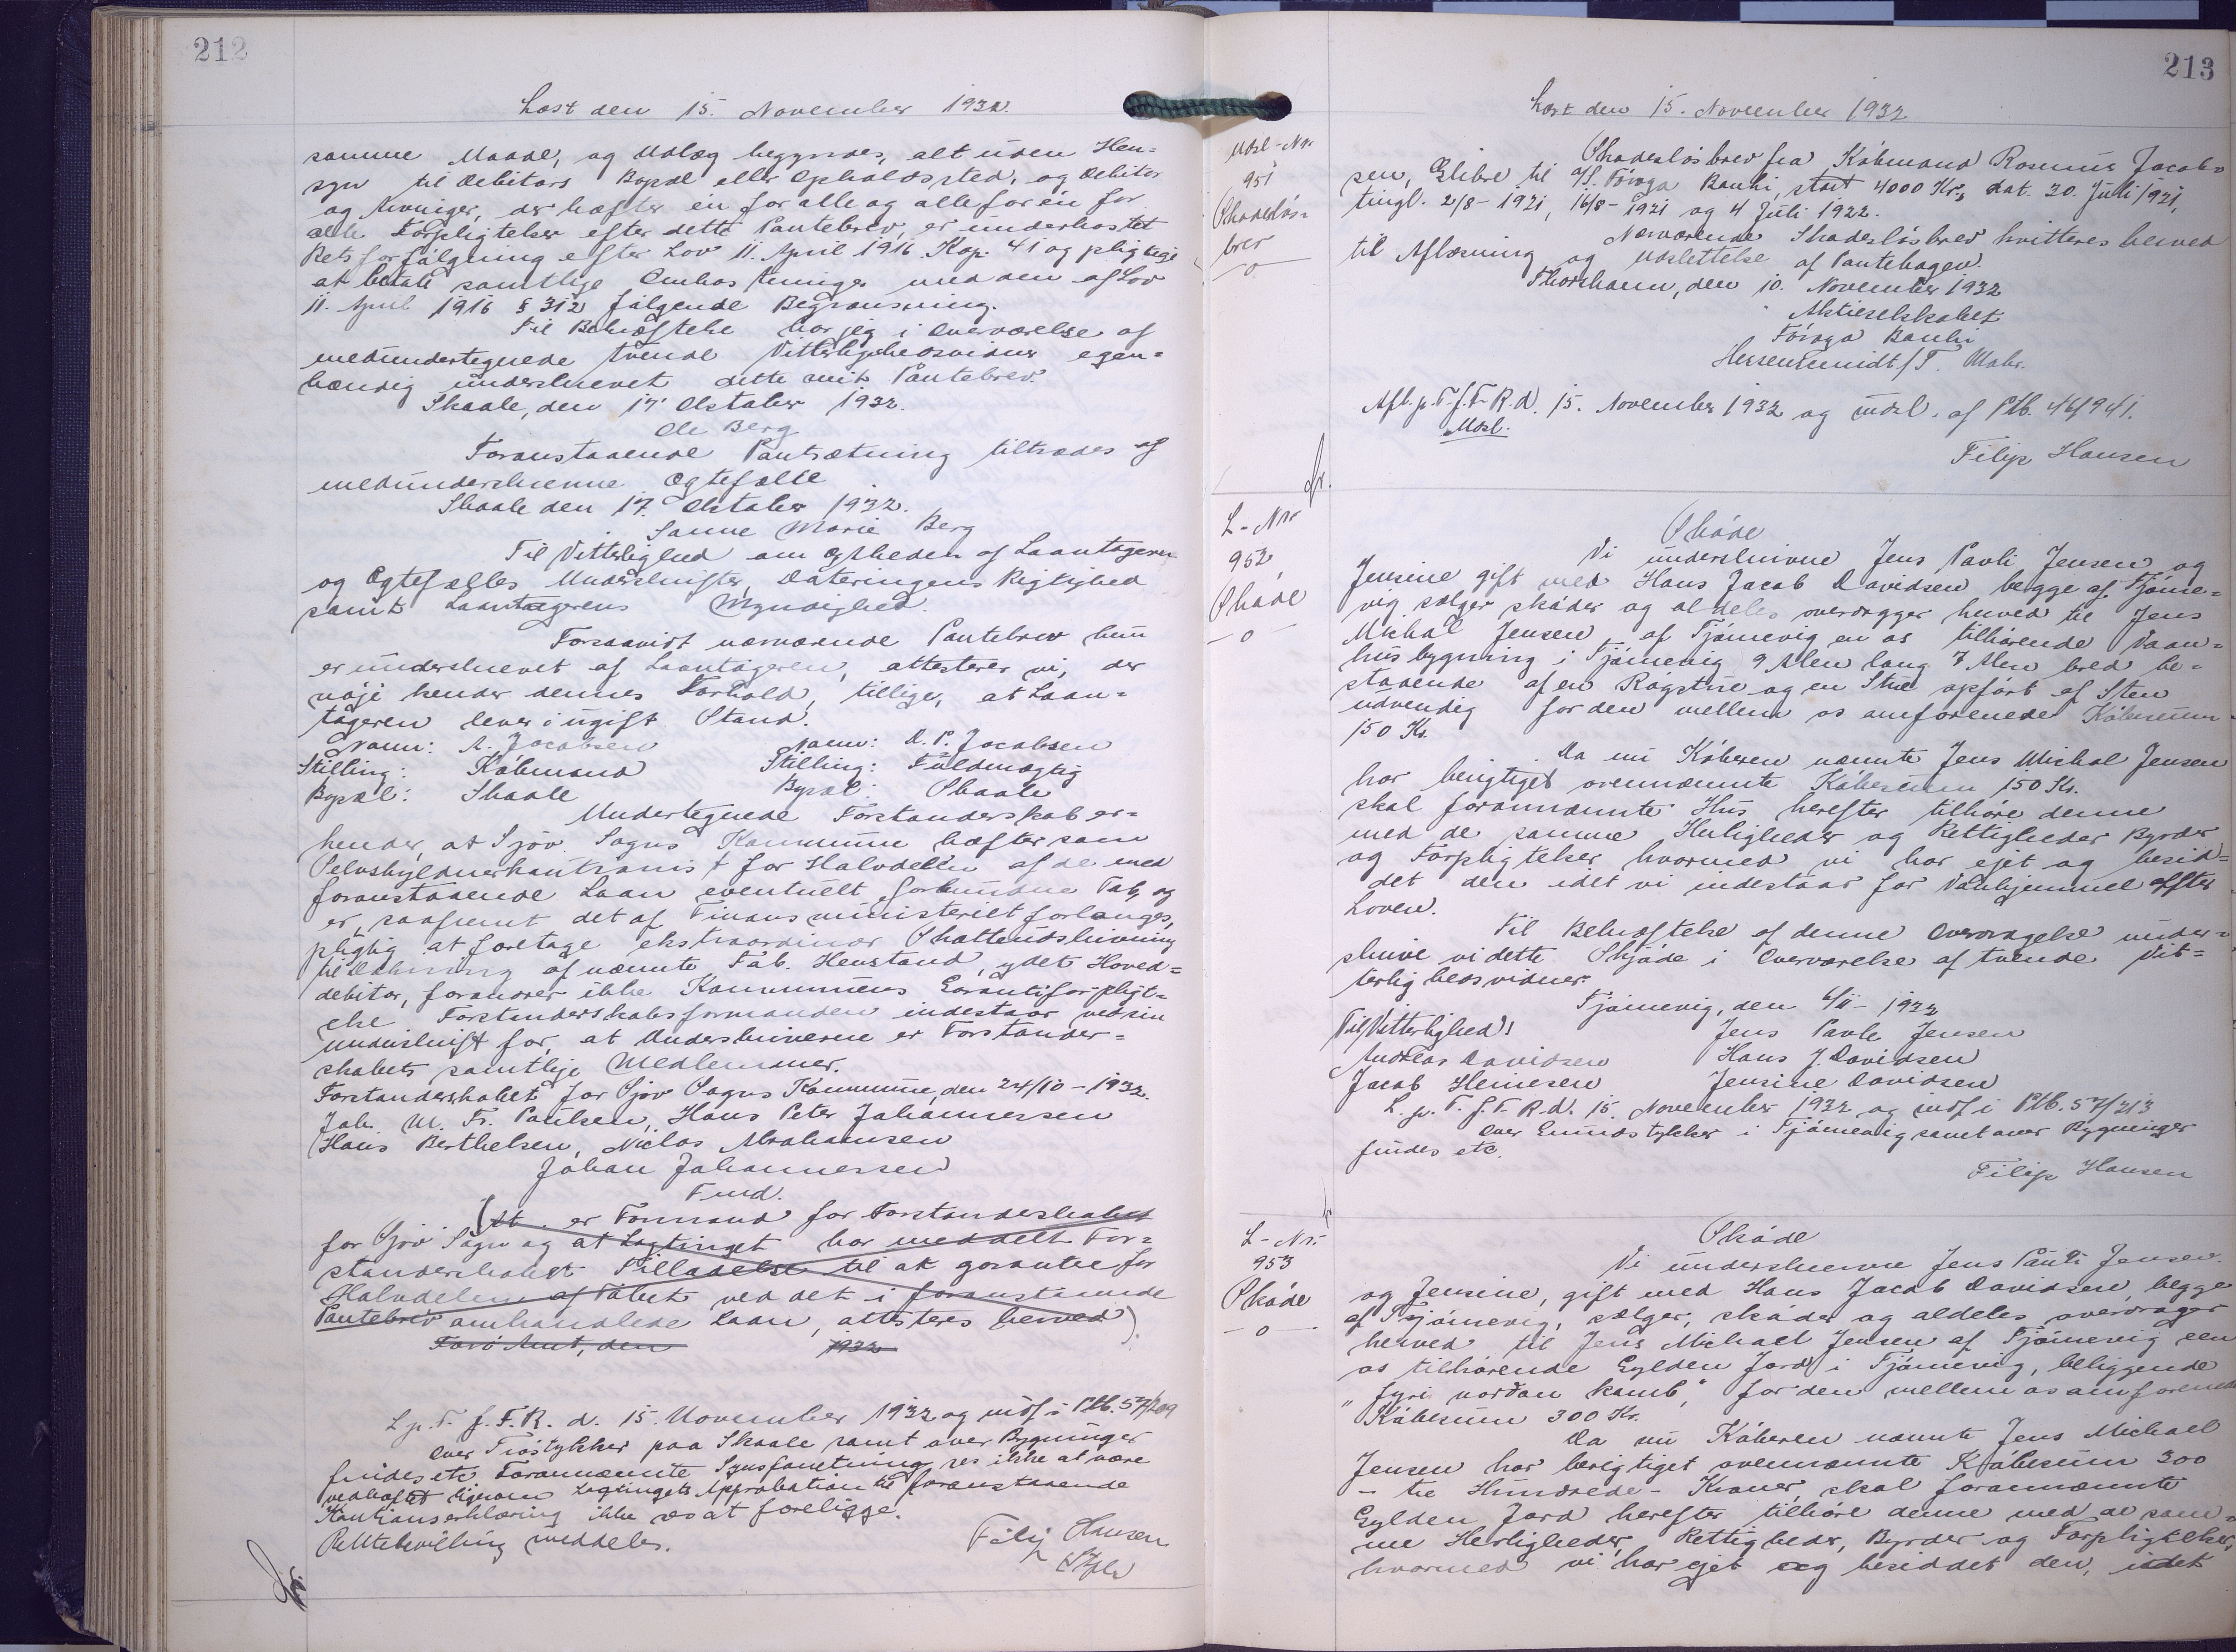 212
Læst den 15. November 1932.
samme Maade, og Udlæg begyndes, alt uden Hen=
syn til Debitors Bopæl eller Opholdssted, og Debitor
og Kautionister, der hæfter én for alle og alle for én for
alle Forpligtelser efter dette Pantebrev, er underkastet
Retsforfølgning efter Lov 11. April 1916 Kap. 41 og pligtige
at betale samtlige Omkostninger med den af Lov
11. April 1916 § 312 følgende Begrænsning.
Til Bekræftelse har jeg i Overværelse af
medundertegnede tvende Vitterlighedsvidner egen=
hændig underskrevet dette mit Pantebrev.
Skaale, den 17 Oktober 1932.
Ole Berg
Foranstaaende Pantsætning tiltrædes af
medunderskrevne Ægtefælle
Skaale den 17. Oktober 1932.
Sanne Marie Berg
Til Vitterlighed om Ægtheden af Laantagerens
og Ægtefælles Underskrifter, Dateringens Rigtighed
samt Laantagerens Myndighed.
Forsaavidt nærværende Pantebrev kun
er underskrevet af Laantageren, attesterer vi, der
nøje kender dennes Forhold, tillige, at Laan=
tageren lever i ugift Stand.
Navn: A. Jacobsen Navn: D. P. Jacobsen
Stilling: Købmand Stilling: Fuldmægtig
Bopæl: Skaale Bopæl: Skaale
Undertegnede Forstanderskab er=
kender, at Sjov Sogns Kommune hæfter som
Selvskyldnerkautionist for Halvdelen af de med
foranstaaende Laan eventuelt forbundne Tab, og
er, saafremt det af Finansministeriet forlanges,
pligtig at foretage ekstraordinær Skatteudskrivning
til Dækning af nævnte Tab. Henstand, ydet Hoved=
debitor, forandrer ikke Kommunens Garantiforpligt=
else Forstanderskabsformanden indestaar ved sin
Underskrift for, at Underskriverne er Forstander=
skabets samtlige Medlemmer.
Forstanderskabet for Sjov Sogns Kommune, den 24/10 - 1932.
Joh. M. Fr. Poulsen, Hans Peter Johannessen
Hans Berthelsen, Niclas Abrahamsen
Johan Johannessen
Fmd.
(At er Formand for Forstanderskabet
for Sjov Sogn og at Lagtinget har meddelt For=
standerskabet Tilladelse til at garantere for
Halvdelen af Tabet ved det i foranstaaende
Pantebrev omhandlede Laan, attesteres herved).
Færø Amt, den 1932
L. p. T. f. F. R. d. 15. November 1932 og indf. i Ptb. 57/209
Over Trøstykker paa Skaale samt over Bygninger
findes etc. Forannævnte Synsforretning ses ikke at være
vedhæftet ligesom Lagtingets Approbation til foranstaaende
Kautionserklæring ikke ses at foreligge.
Retsbevilling meddeles.
Filip Hansen
213
Læst den 15. November 1932
Udsl-Nr.
951
Skadesløs-
brev
-o-
Skadesløsbrev fra Købmand Rasmus Jacob=
sen, Glibre til A/S. Føroya Banki, stort 4000 Kr., dat. 20. Juli 1921,
tingl. 2/8 - 1921, 16/8 - 1921 og 4 Juli 1922.
Nærværende Skadesløsbrev kvitteres herved
til Aflæsning og Udslettelse af Pantebogen.
Thorshavn, den 10. November 1932
Aktieselskabet
Føroya Banki
Heysenschmidt / T. Mohr.
Afl. p. T. f. F. R. d. 15. November 1932 og udsl. af Ptb. 46/941.
Udsl.
Filip Hansen
L - Nr
952
Skøde
-o-
Skøde
Vi underskrivne Jens Pauli Jensen og
Jensine gift med Hans Jacob Davidsen begge af Tjørne=
vig sælger skøder og aldeles overdrager herved til Jens
Michal Jensen af Tjørnevig en os tilhørende Vaan=
husbygning i Tjørnevig 9 Alen lang 7 Alen bred be=
staaende af en Røgstue og en Stue opført af Sten
udvendig for den mellem os omforenede Købesum
150 Kr.
Da nu Køberen nævnte Jens Michal Jensen
har berigtiget ovennævnte Købesum 150 Kr.
skal forannævnte Hus herefter tilhøre denne
med de samme Herligheder og Rettigheder Byrder
og Forpligtelser hvormed vi har ejet og besid=
det den idet vi indestaar for Vanhjemmel efter
Loven.
Til Bekræftelse af denne Overdragelse under=
skrive vi dette Skjøde i Overværelse af tvende Vit=
terlighedsvidner.
Tjørnevig, den 6/11 - 1932
Til Vitterlighed: Jens Pavle Jensen
Andreas Davidsen Hans J. Davidsen
Jacob Heinesen Jensine Davidsen
L. p. T. f. F. R. d. 15. November 1932 og indf. i Ptb. 57/213
Over Grundstykker i Tjørnevig samt over Bygninger
findes etc.
Filip Hansen
L - Nr.
953
Skøde
-o-
Skøde
Vi underskrevne Jens Pauli Jensen
og Jensine, gift med Hans Jacob Davidsen, begge
af Tjørnevig, sælger, skøder og aldeles overdrager
herved til Jens Michael Jensen af Tjørnevig een
os tilhørende Gylden Jord i Tjørnevig, beliggende
"fyri norðan Kamb", for den mellem os omforenede
Købesum 300 Kr.
Da nu Køberen nævnte Jens Michael
Jensen har berigtiget ovennævnte Købesum 300
- tre Hundrede - Kroner, skal forannævnte
Gylden Jord herefter tilhøre denne med de sam=
me Herligheder, Rettigheder, Byrder og Forpligtelser,
hvormed vi har ejet og besiddet den, idet